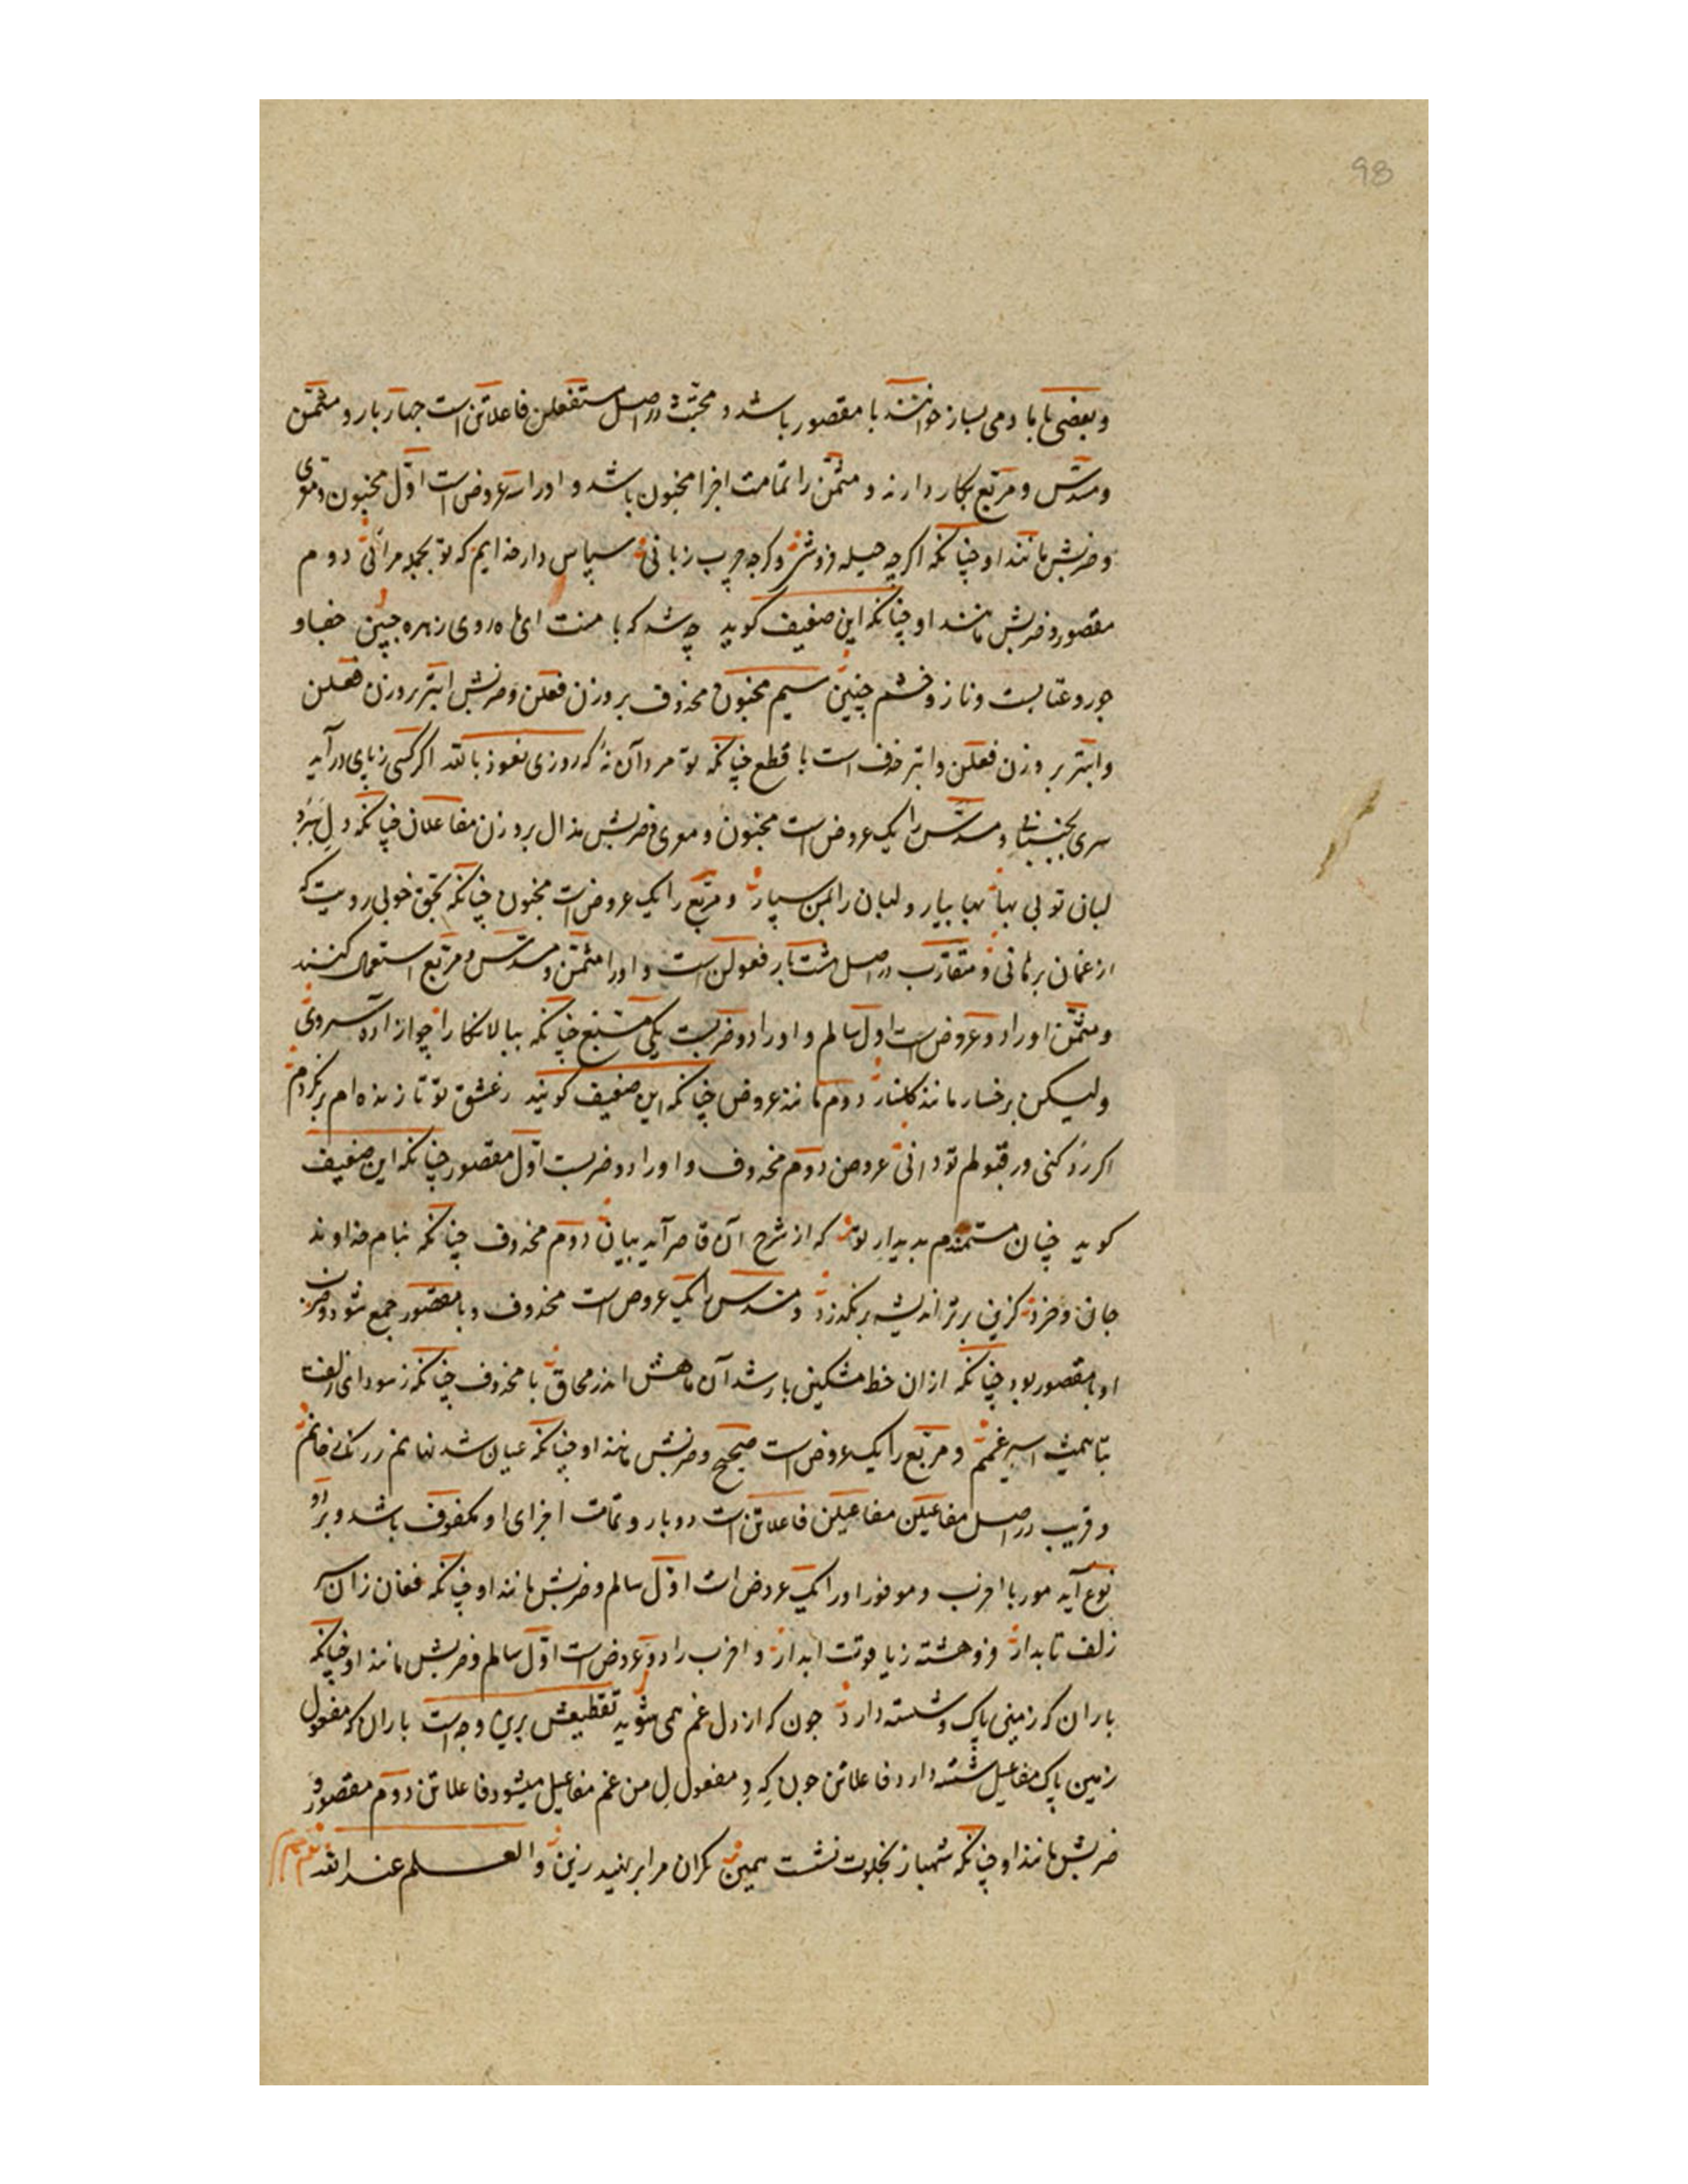 98
و بعضی با با دمی بساز خوانند با مقصور باشد و مجتث در اصل مستفعلن فاعلاتن است چهار بار و مثمن
و مسدس و مربع بکار دارند و مثمن را تمامت اجزا مخبون باشد و او را سه عروض است اول مخبون و معری
و ضربش مانند او چنانکه اکرچه حیله فروشی وکرچه چرب زبانی سپاس دار خدایم که تو بجمله مرائی دوم
مقصور و ضربش مانند او چنانکه این ضعیف کوید چه شد که با منت ای ماه روی زهره جبین جفا و
جور و عتابست و ناز و خشم چنین سیم مخبون محذوف بر وزن فعلن و ضربش ابتر بر وزن فعلن
و ابتر بر وزن فعلن و ابتر حذف است با قطع چنانکه تو مرد آن نهٔ که روزی نعوذ بالله اکر کسی ز پای درآید
سری بجنبانی و مسدس را یک عروض است مخبون و معری و ضربش مذال بر وزن مفاعلان چنانکه دل ببرد
لبان تو بی بها بها بیار و لبان را بمن سپار و مربع را یک عروض است مخبون چنانکه بحق خوبی رویت که
از غمان برهانی و متقارب در اصل هشت بار فعولن است و او را مثمن و مسدس و مربع استعمال کنند
و مثمن او را دو عروض است اول سالم و او را دو ضربست یکی مسبغ چنانکه ببالا نکارا چو آزاده سروی
ولیکن برخسار مانند کلنار دوم مانند عروض چنانکه این ضعیف کوید ز عشق تو تا زنده‌ام برنکردم
اکر رد کنی ور قبولم تو دانی عروض دوم محذوف و او را دو ضربست اول مقصور چنانکه این ضعیف
کوید چنان مستمندم بدیدار تو که از شرح آن قاصر آید بیان دوم محذوف چنانکه بنام خداوند
جان و خرد کزین برتر اندیشه برنکذرد و مسدس را یک عروض است محذوف و با مقصور جمع شود و ضرب
او یا مقصور بود چنانکه از ان خط مشکین بار شد آن ماهش اندر محاق یا محذوف چنانکه ز سودای زلف
بتا همیشه اسیر غمم و مربع را یک عروض است صحیح و ضربش مانند او چنانکه عیان شد نهانم
و قریب در اصل مفاعیلن مفاعیلن فاعلاتن است دو بار و تمامت اجزای او مکفوف باشد و بر دو
نوع آید موفور یا اخرب و موفور او را یک عروض است اول سالم و ضربش مانند او چنانکه فغان زان سر
زلف تابدار فروهشته ز یاقوت ابدار و اخرب را دو عروض است اول سالم و ضربش مانند او چنانکه
باران که زمین پاک و شسته دارد چون که از دل غم همی شوید تقطیعش برین وجه است باران که مفعول
زمین پاک مفاعیل شسته دارد فاعلاتن چون که د مفعول ل من غم مفاعیل میشود فاعلاتن دوم مقصور و
ضربش مانند او چنانکه شهباز بخلوت نشست همین نکران مرا بر نهید زین و العلم عند الله